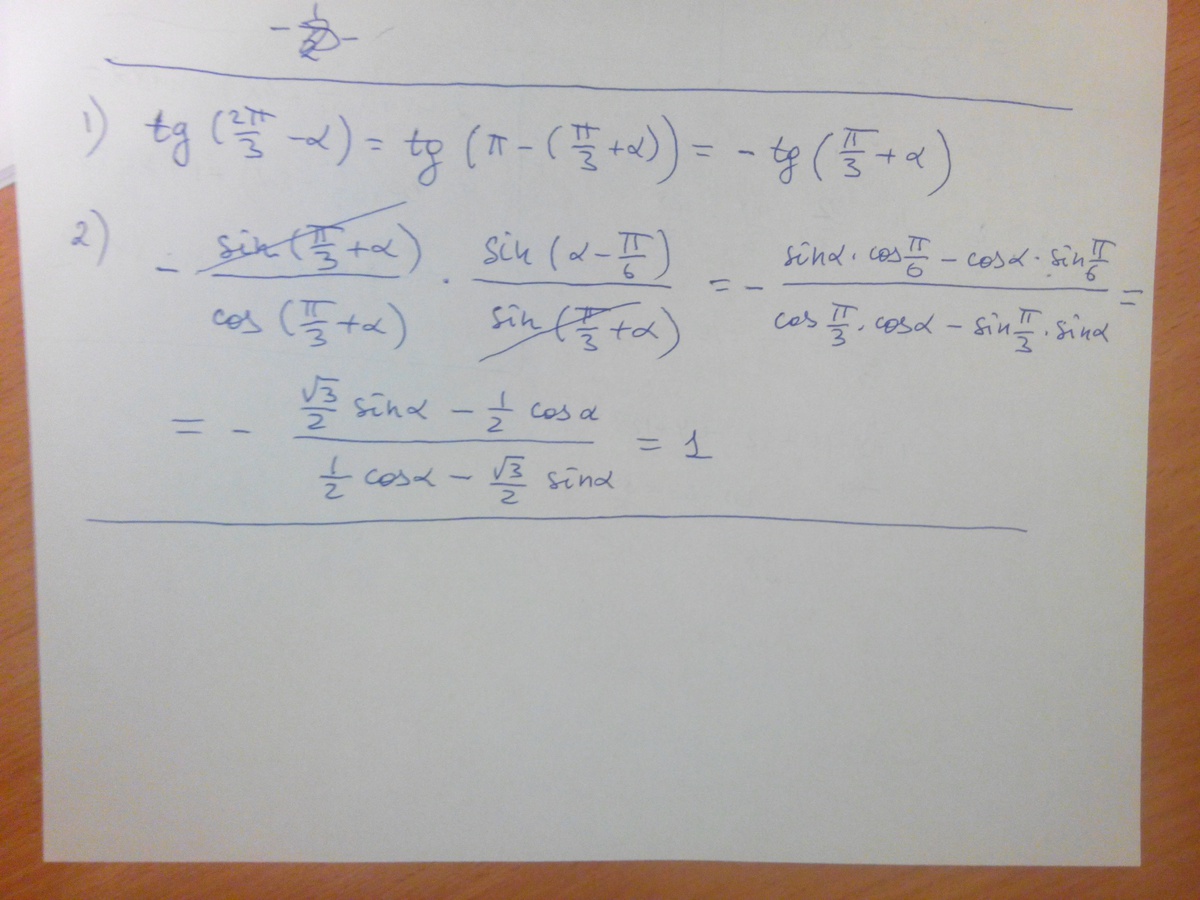 1) tg (2π/3 - α) = tg (π - (π/3 + α)) = - tg (π/3 + α)
2) - sin (π/3 + α) / cos (π/3 + α) · sin (α - π/6) / sin (π/3 + α) = - (sinα · cos π/6 - cosα · sin π/6) / (cos π/3 · cosα - sin π/3 · sinα) =
= - (√3/2 sinα - 1/2 cosα) / (1/2 cosα - √3/2 sinα) = 1